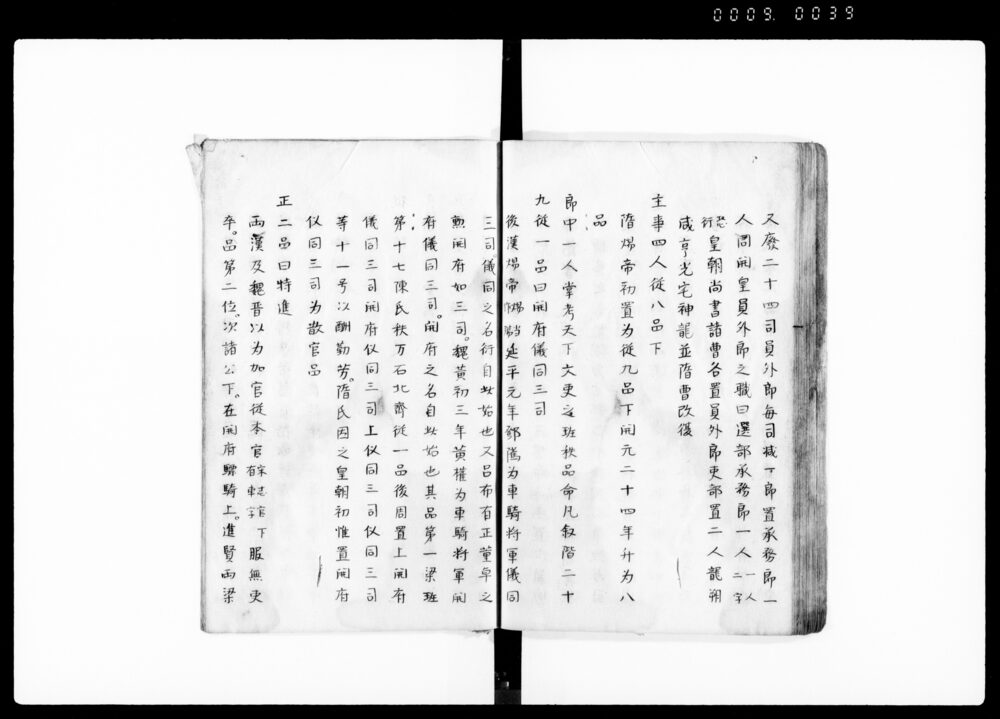 0009. 0039
又廢二十四司員外郎每司減一郎置承務郎一
人同開皇員外郎之職曰選部承務郎一人一人二字
恐衍皇朝尚書諸曹各置員外郎吏部置二人龍朔
咸亨光宅神龍並隨曹改復
主事四人從八品下
隋煬帝初置為從九品下開元二十四年升為八
品
郎中一人掌考天下文吏之班秩品命凡叙階二十
九從一品曰開府儀同三司
後漢殤帝延平元年鄧騭為車騎將軍儀同
三司儀同之名行自此始也又呂布有正董卓之
勲開府如三司。魏黃初三年黃權為車騎將軍開
府儀同三司。開府之名自此始也其品第一梁班
第十七陳氏秩万石北齊從一品後周置上開府
儀同三司開府仪同三司上仪同三司仪同三司
等十一号以酬勤劳。隋氏因之皇朝初惟置開府
仪同三司為散官品
正二品曰特進
兩漢及魏晋以為加官從本官下服無吏
卒。品第二位。次諸公下。在開府驃騎上。進賢兩梁